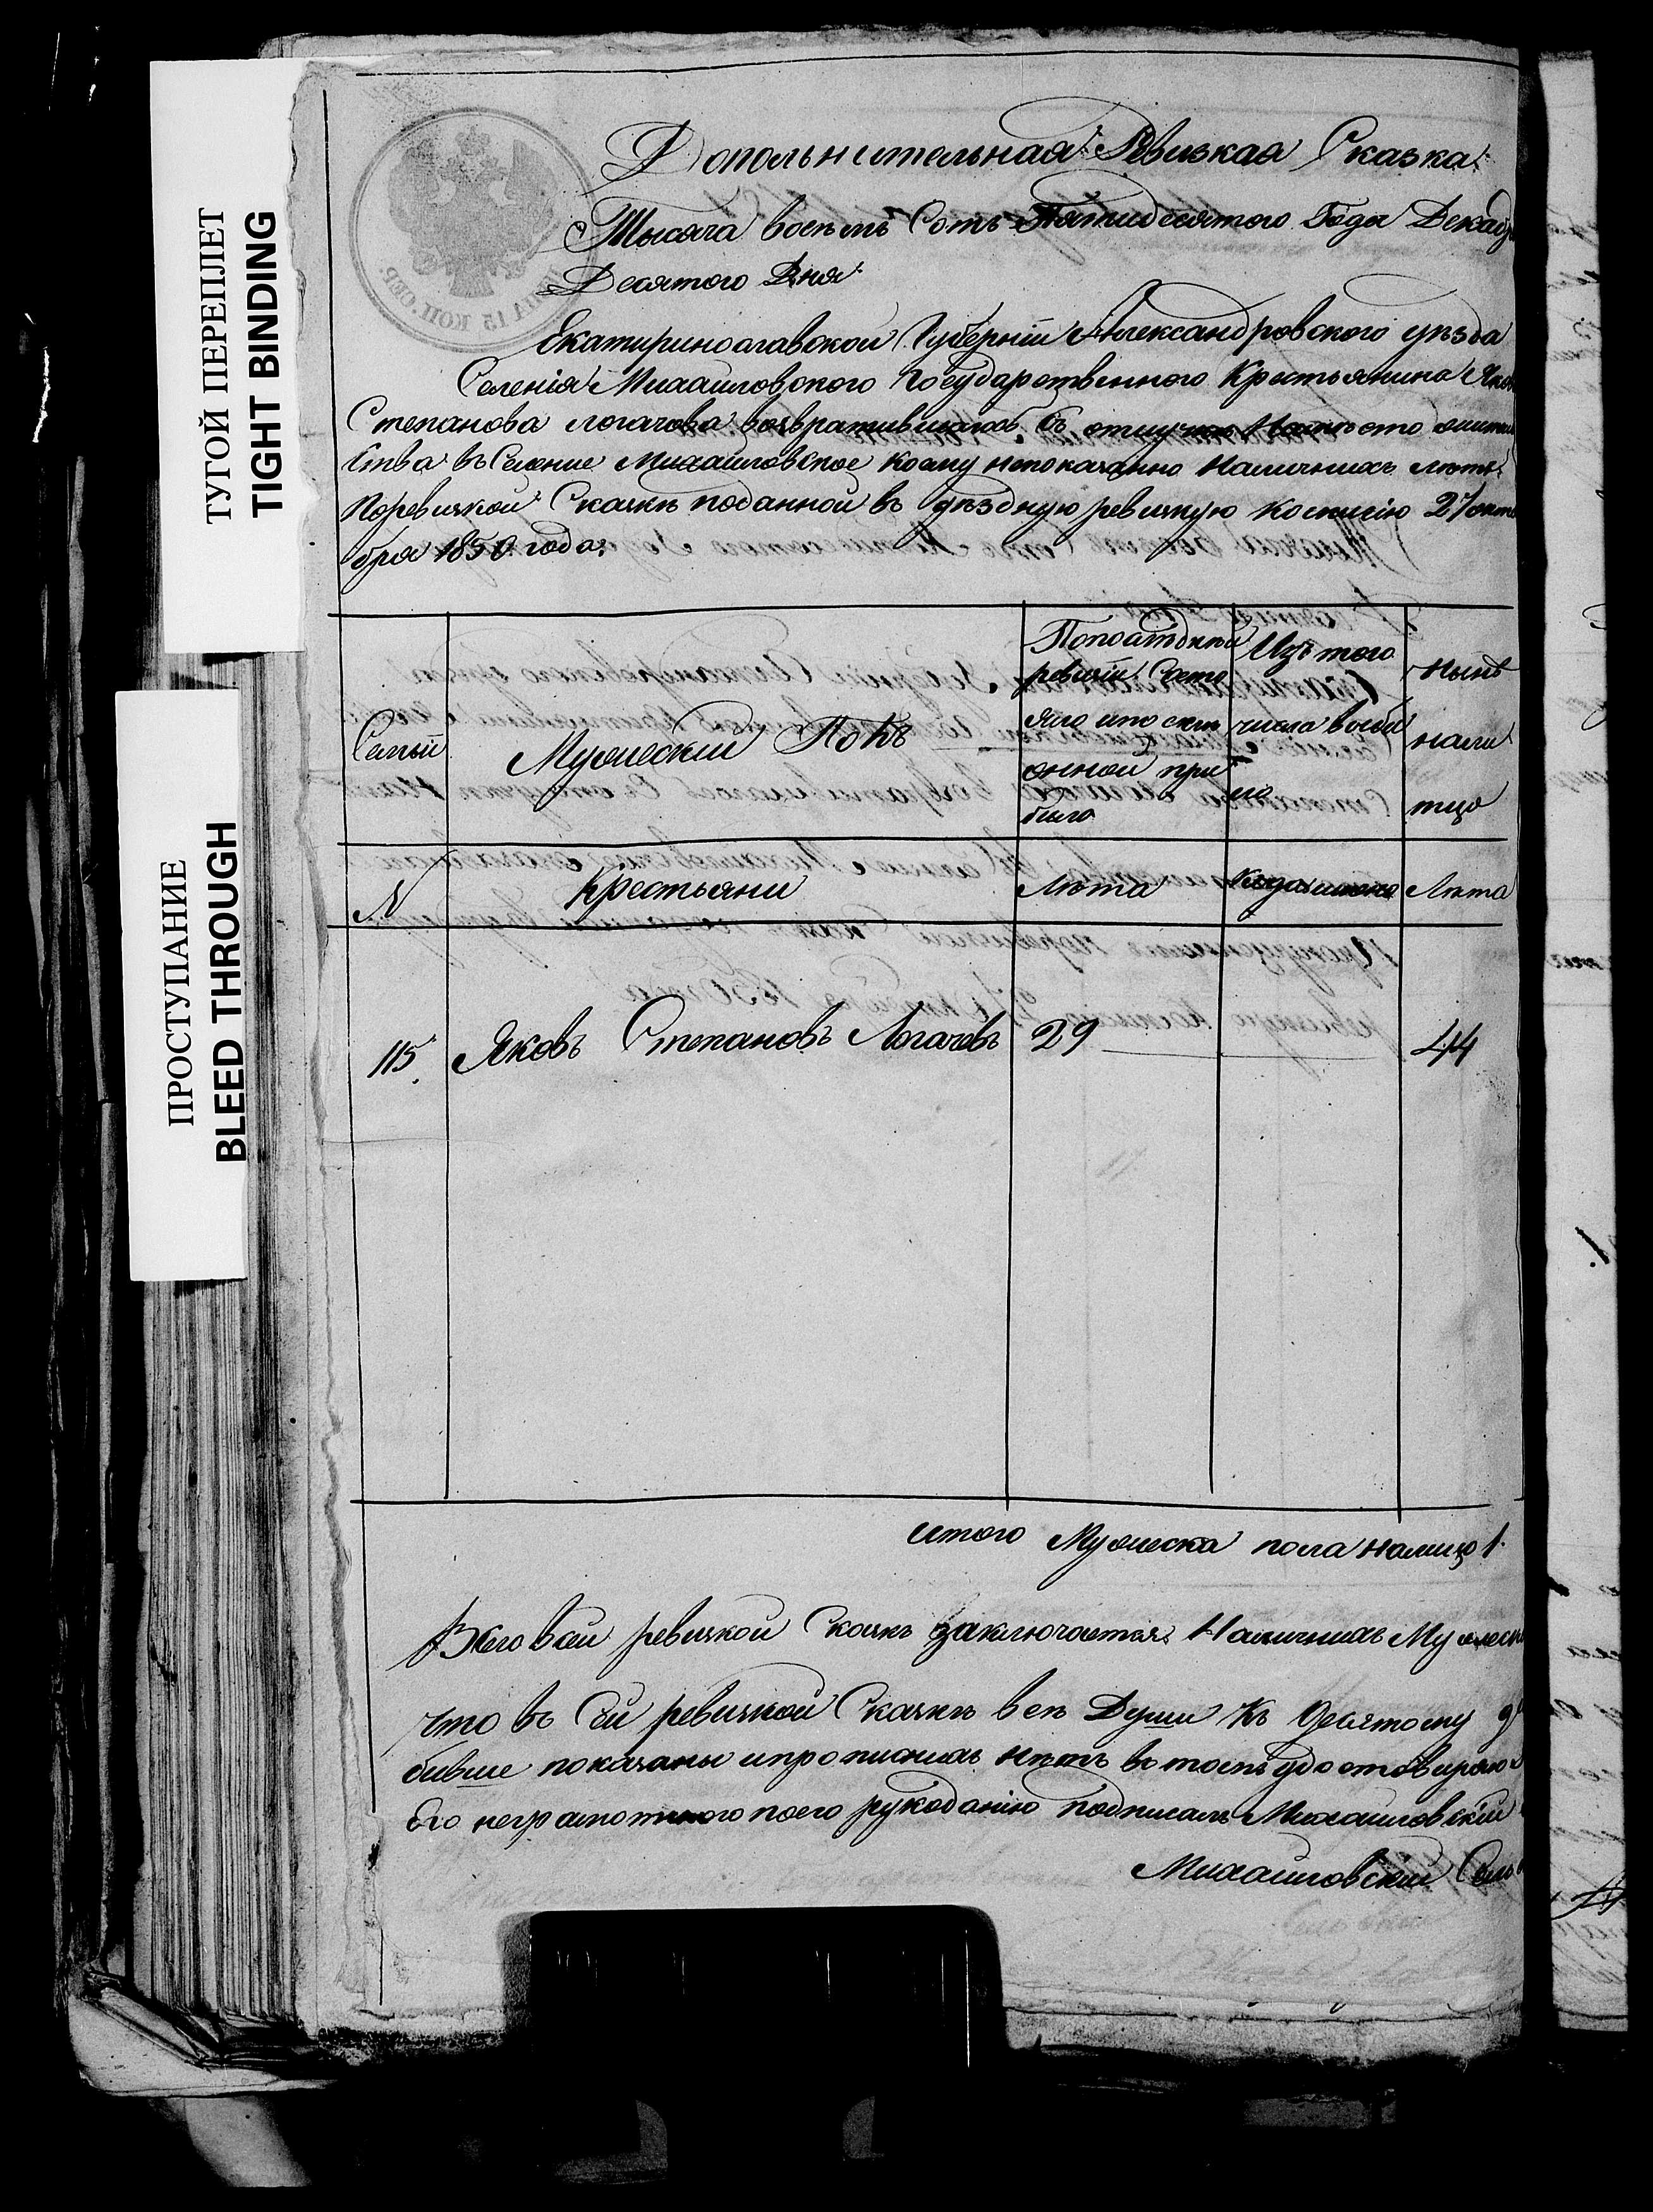 ТУГОЙ ПЕРЕПЛЕТ
TIGHT BINDING
ПРОСТУПАНИЕ
BLEED THROUGH
15 КОП. СЕР.
Дополнительная Ревизкая Сказка
Тысяча восемъ Сотъ Пятидесятого Года Декаб
Десятого Дня
Екатиринославской Губерніи Александровского уѣзда
Селенія Михайловского Государственного Крестьянина
Степанова Логачова возвратившагось съ отлучки
ства въ Селение Михайловское коему непоказанно Наличнихъ лѣтъ
Поревизкой Сказкѣ поданной въ уѣздную ревизкую Комисію 27 октя
бря 1850 года
Семьи
Мужеский Полъ
ревизіи Состо
было
Изъ того
числа выби
ло
Нынѣ
нали
тцо
N
Крестьяни
Лѣта
Лѣта
115.
Яковъ Степановъ Логачовъ
29
44
итого Мужеска пола налицо 1.
Всего в сеи ревизкой Сказкѣ заключается Наличнихъ Мужеск
что въ сей ревизкой Сказкѣ всѣ Души къ Десятому
бившие показаны и прописнихъ нѣтъ въ томъ удостовѣряю
Его неграмотного поего рукоданію подписалъ Михайловский
Михайловский Сель